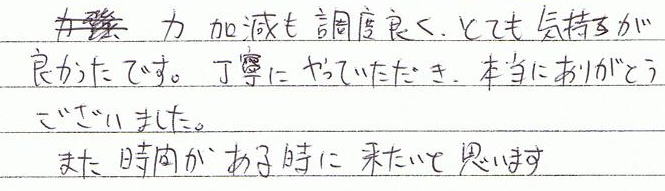 力加減も調度良く、とても気持ちが
良かったです。丁寧にやっていただき、本当にありがとう
ございました。
また時間がある時に来たいと思います